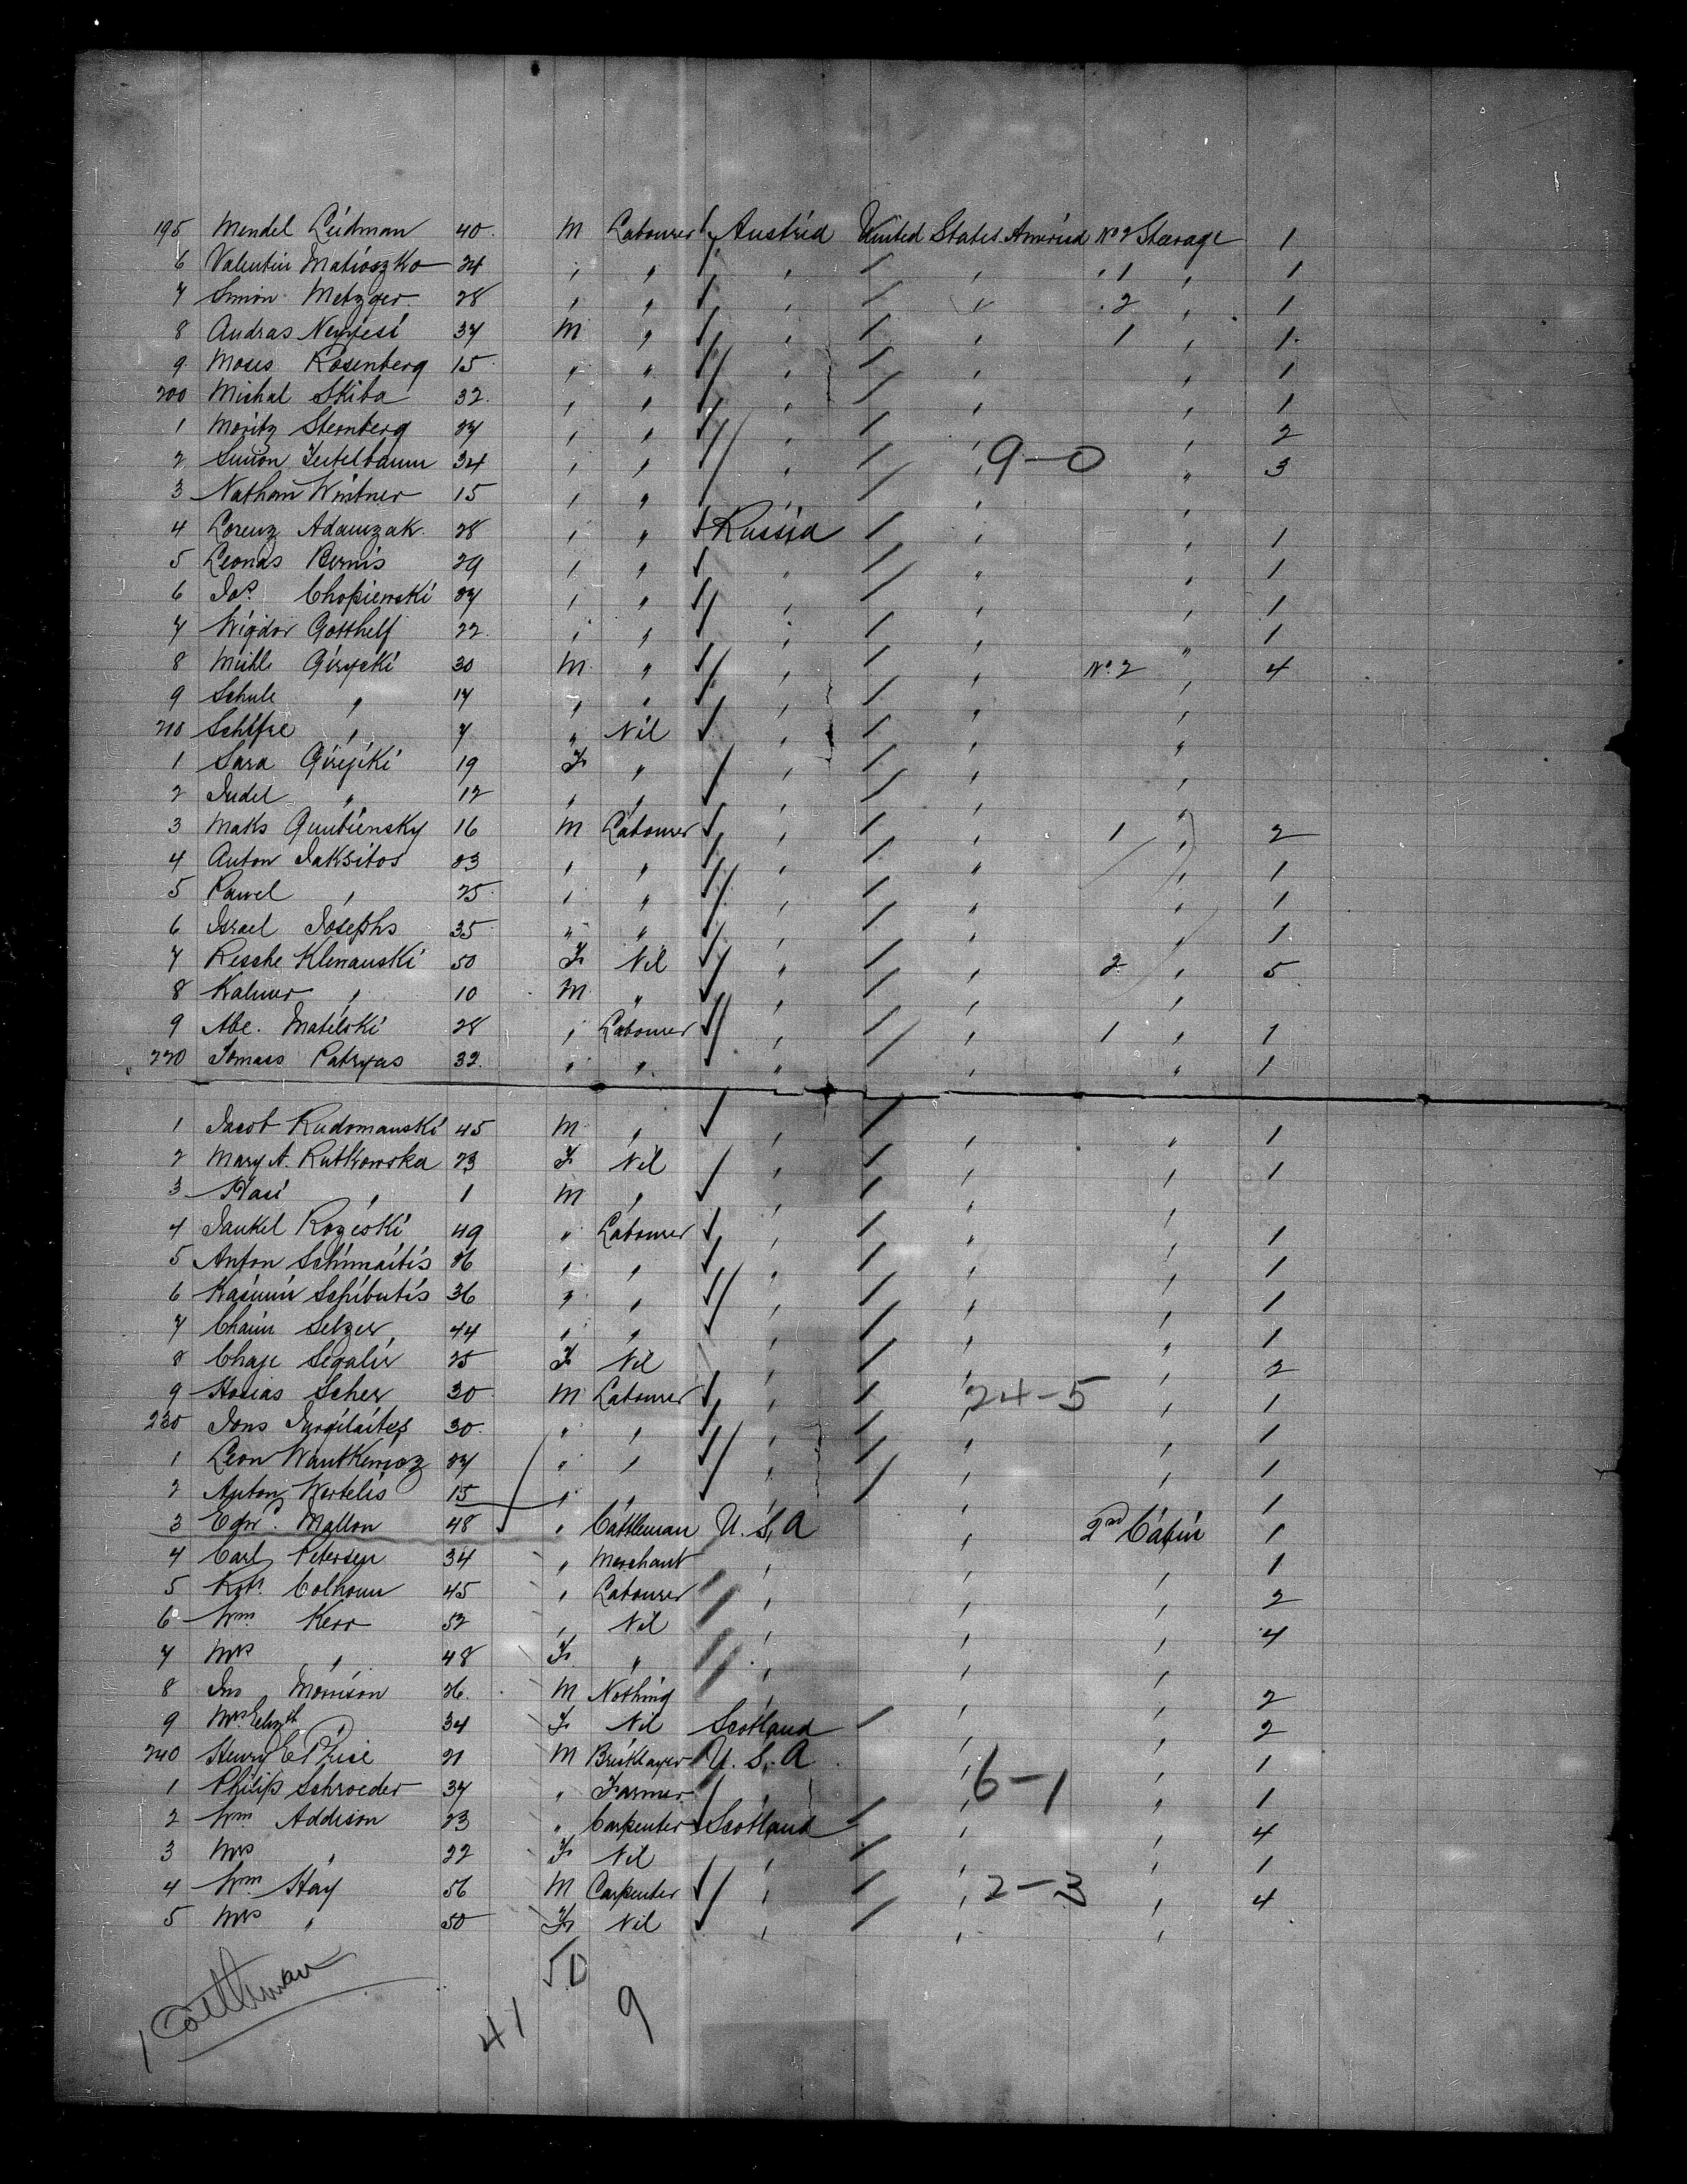 195 Mendel Leidman 40 M Labourer Austria United States America No 2 Stearage 1
6 Valentin Matioszko 24 " " " " " 1 " 1
7 Simon Metzger 28 " " " " 2 " 1
8 Andras 37 M " " " 1 " 1
9 Moses Rosenberg 15 " " " " " 1
200 Michal Skiba 32 " " " " " 1
1 Moritz Sternberg 27 " " " " " 2
2 Simon Teitelbaum 34 " " " " 9-0 " 3
3 Nathan Wintner 15 " " " " "
4 Lorenz Adamzak 28 " " Russia " " 1
5 Leonas Bernis 29 " " " " " 1
6 Jos. Chopiewski 27 " " " " " 1
7 Wigdor Gotthelf 22 " " " " " 1
8 Michle Girycki 30 M " " " No 2 " 4
9 Schule " 17 " " " " "
210 " 7 " Nil " " "
1 Sara 19 F " " " "
2 Judel " 12 " " " " "
3 Maks 16 M Labourer " " 1 " 2
4 Anton Jaksitos 23 " " " " " 1
5 Pawel " 25 " " " " " 1
6 Israel Josephs 35 " " " " " 1
7 Resche Klenauski 50 F Nil " " 2 " 5
8 Kalmer " 10 M " " " "
9 Abe. Matilski 28 " Labourer " " 1 " 1
220 Tomass Patryas 32 " " " " " 1
1 Jacob Rudomanski 45 M " " " " 1
2 Mary A. Rutkowska 23 F Nil " " " 1
3 " 1 M " " " "
4 Jankel Rozeski 49 " Labourer " " " 1
5 Anton Schimaitis 26 " " " " " 1
6 Kasimir Schibutis 36 " " " " " 1
7 Chaim Selzer 44 " " " " " 1
8 Chaje Segalir 25 F Nil " " " 2
9 Hosias Scher 30 M Labourer " 24-5 " 1
230 Jons 30 " " " " " 1
1 Leon Wautkewicz 27 " " " " " 1
2 Anton Wertelis 15 " " " " " 1
3 Edwd. Mallon 48 " Cattleman U.S.A " 2nd Cabin 1
4 Carl Petersen 34 " Merchant " " " 1
5 Rob. Colhoun 45 " Labourer " " " 2
6 Wm Kerr 52 " Nil " " " 4
7 Mrs " 48 F " " " "
8 Jno Morrison 26 M Nothing " " " 2
9 Mrs Elizth " 34 F Nil Scotland " " 2
240 Henry E Price 21 M Bricklayer U.S.A " " 1
1 Philip Schroeder 37 " Farmer " 6-1 " 1
2 Wm Addison 23 " Carpenter Scotland " " 4
3 Mrs " 22 F Nil " " " 1
4 Wm Hay 56 M Carpenter " 2-3 " 4
5 Mrs " 50 F Nil " " "
50
1 Cattleman
41 9